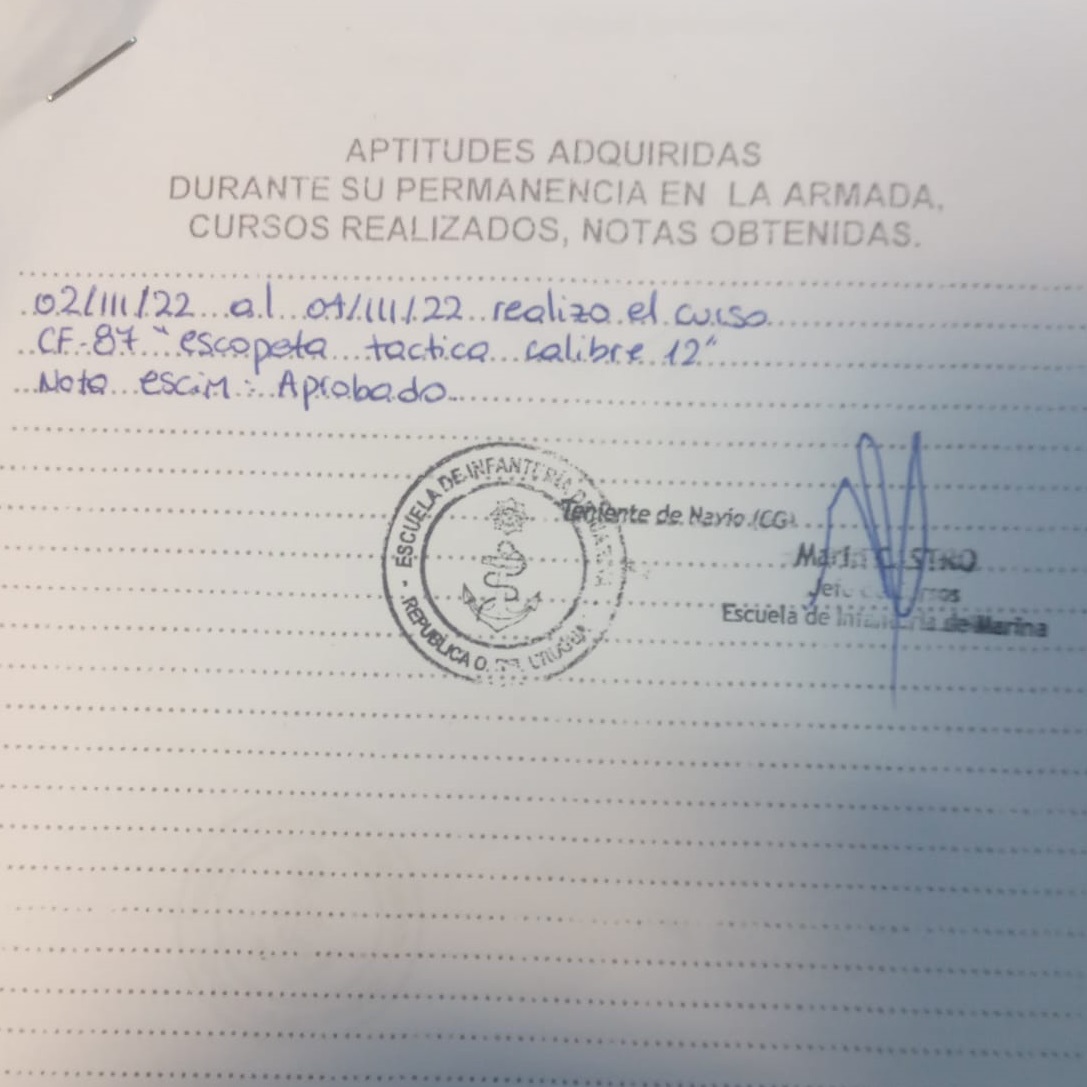 APTITUDES ADQUIRIDAS
DURANTE SU PERMANENCIA EN LA ARMADA,
CURSOS REALIZADOS, NOTAS OBTENIDAS.
02/III/22 al 04/III/22 realizo el curso
CF-87 "escopeta tactica calibre 12"
Nota escim: Aprobado
ESCUELA DE INFANTERÍA DE MARINA
REPUBLICA O.
Teniente de Navío (CG)
CASTRO
Escuela de Infantería de Marina